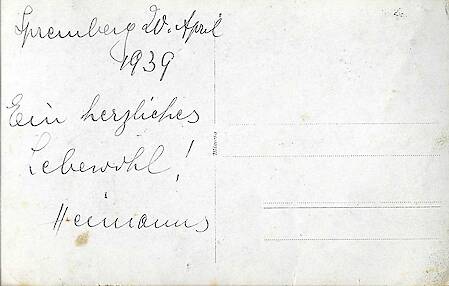 Spremberg 20. April
1939
Ein herzliches
Lebewohl!
Heimanns
Mimosa